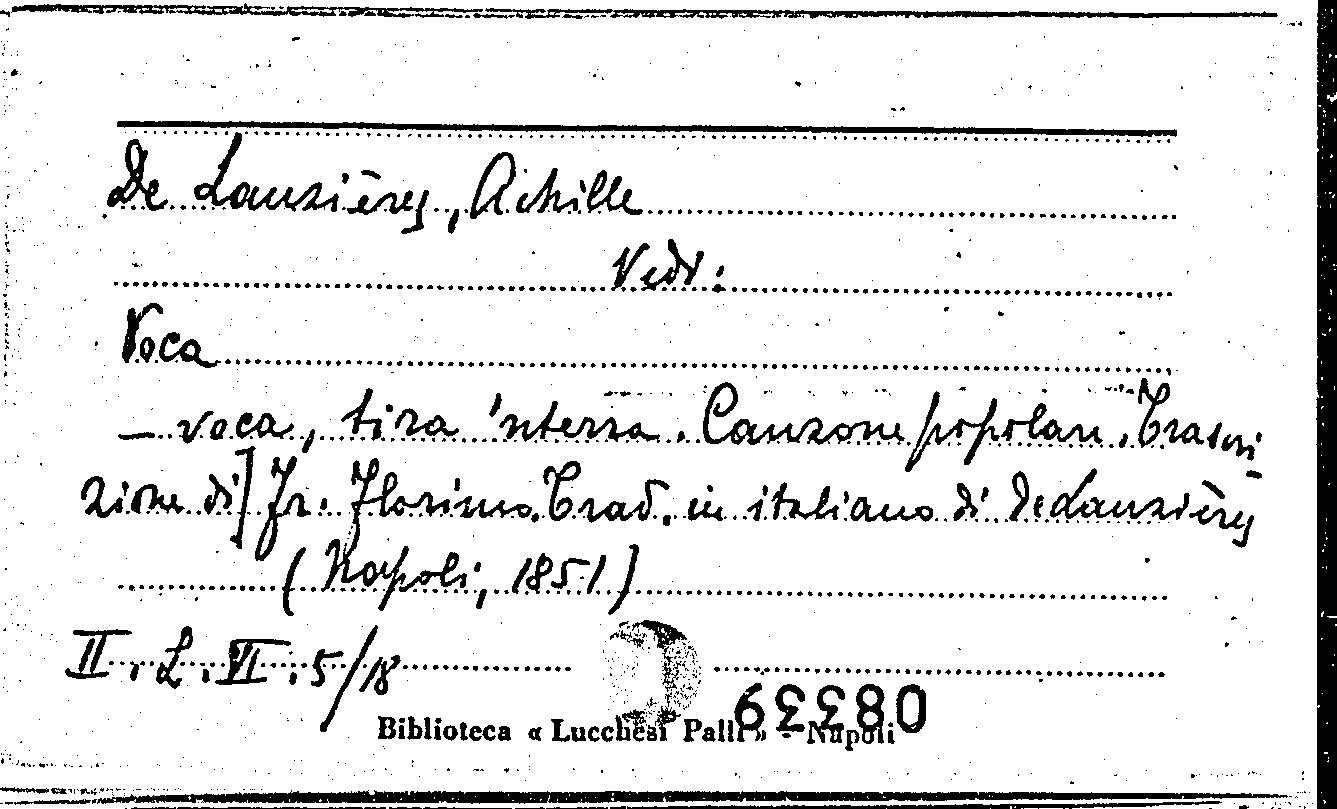 De Lauzières, Achille
Vedi:
Voca
– voca, tira 'nterra. Canzone popolare. Trascri-
zione di] Fr. Florimo. Trad. in italiano di De Lauzières
(Napoli, 1851)
II. L. VI. 5/18
08339
Biblioteca « Lucchesi Palli » - Napoli